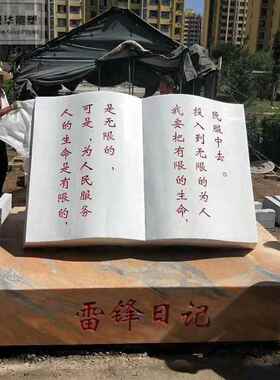 人的生命是有限的，
可是，为人民服务
是无限的，
我要把有限的生命，
投入到无限的为人
民服中去。
雷锋日记
华雕塑